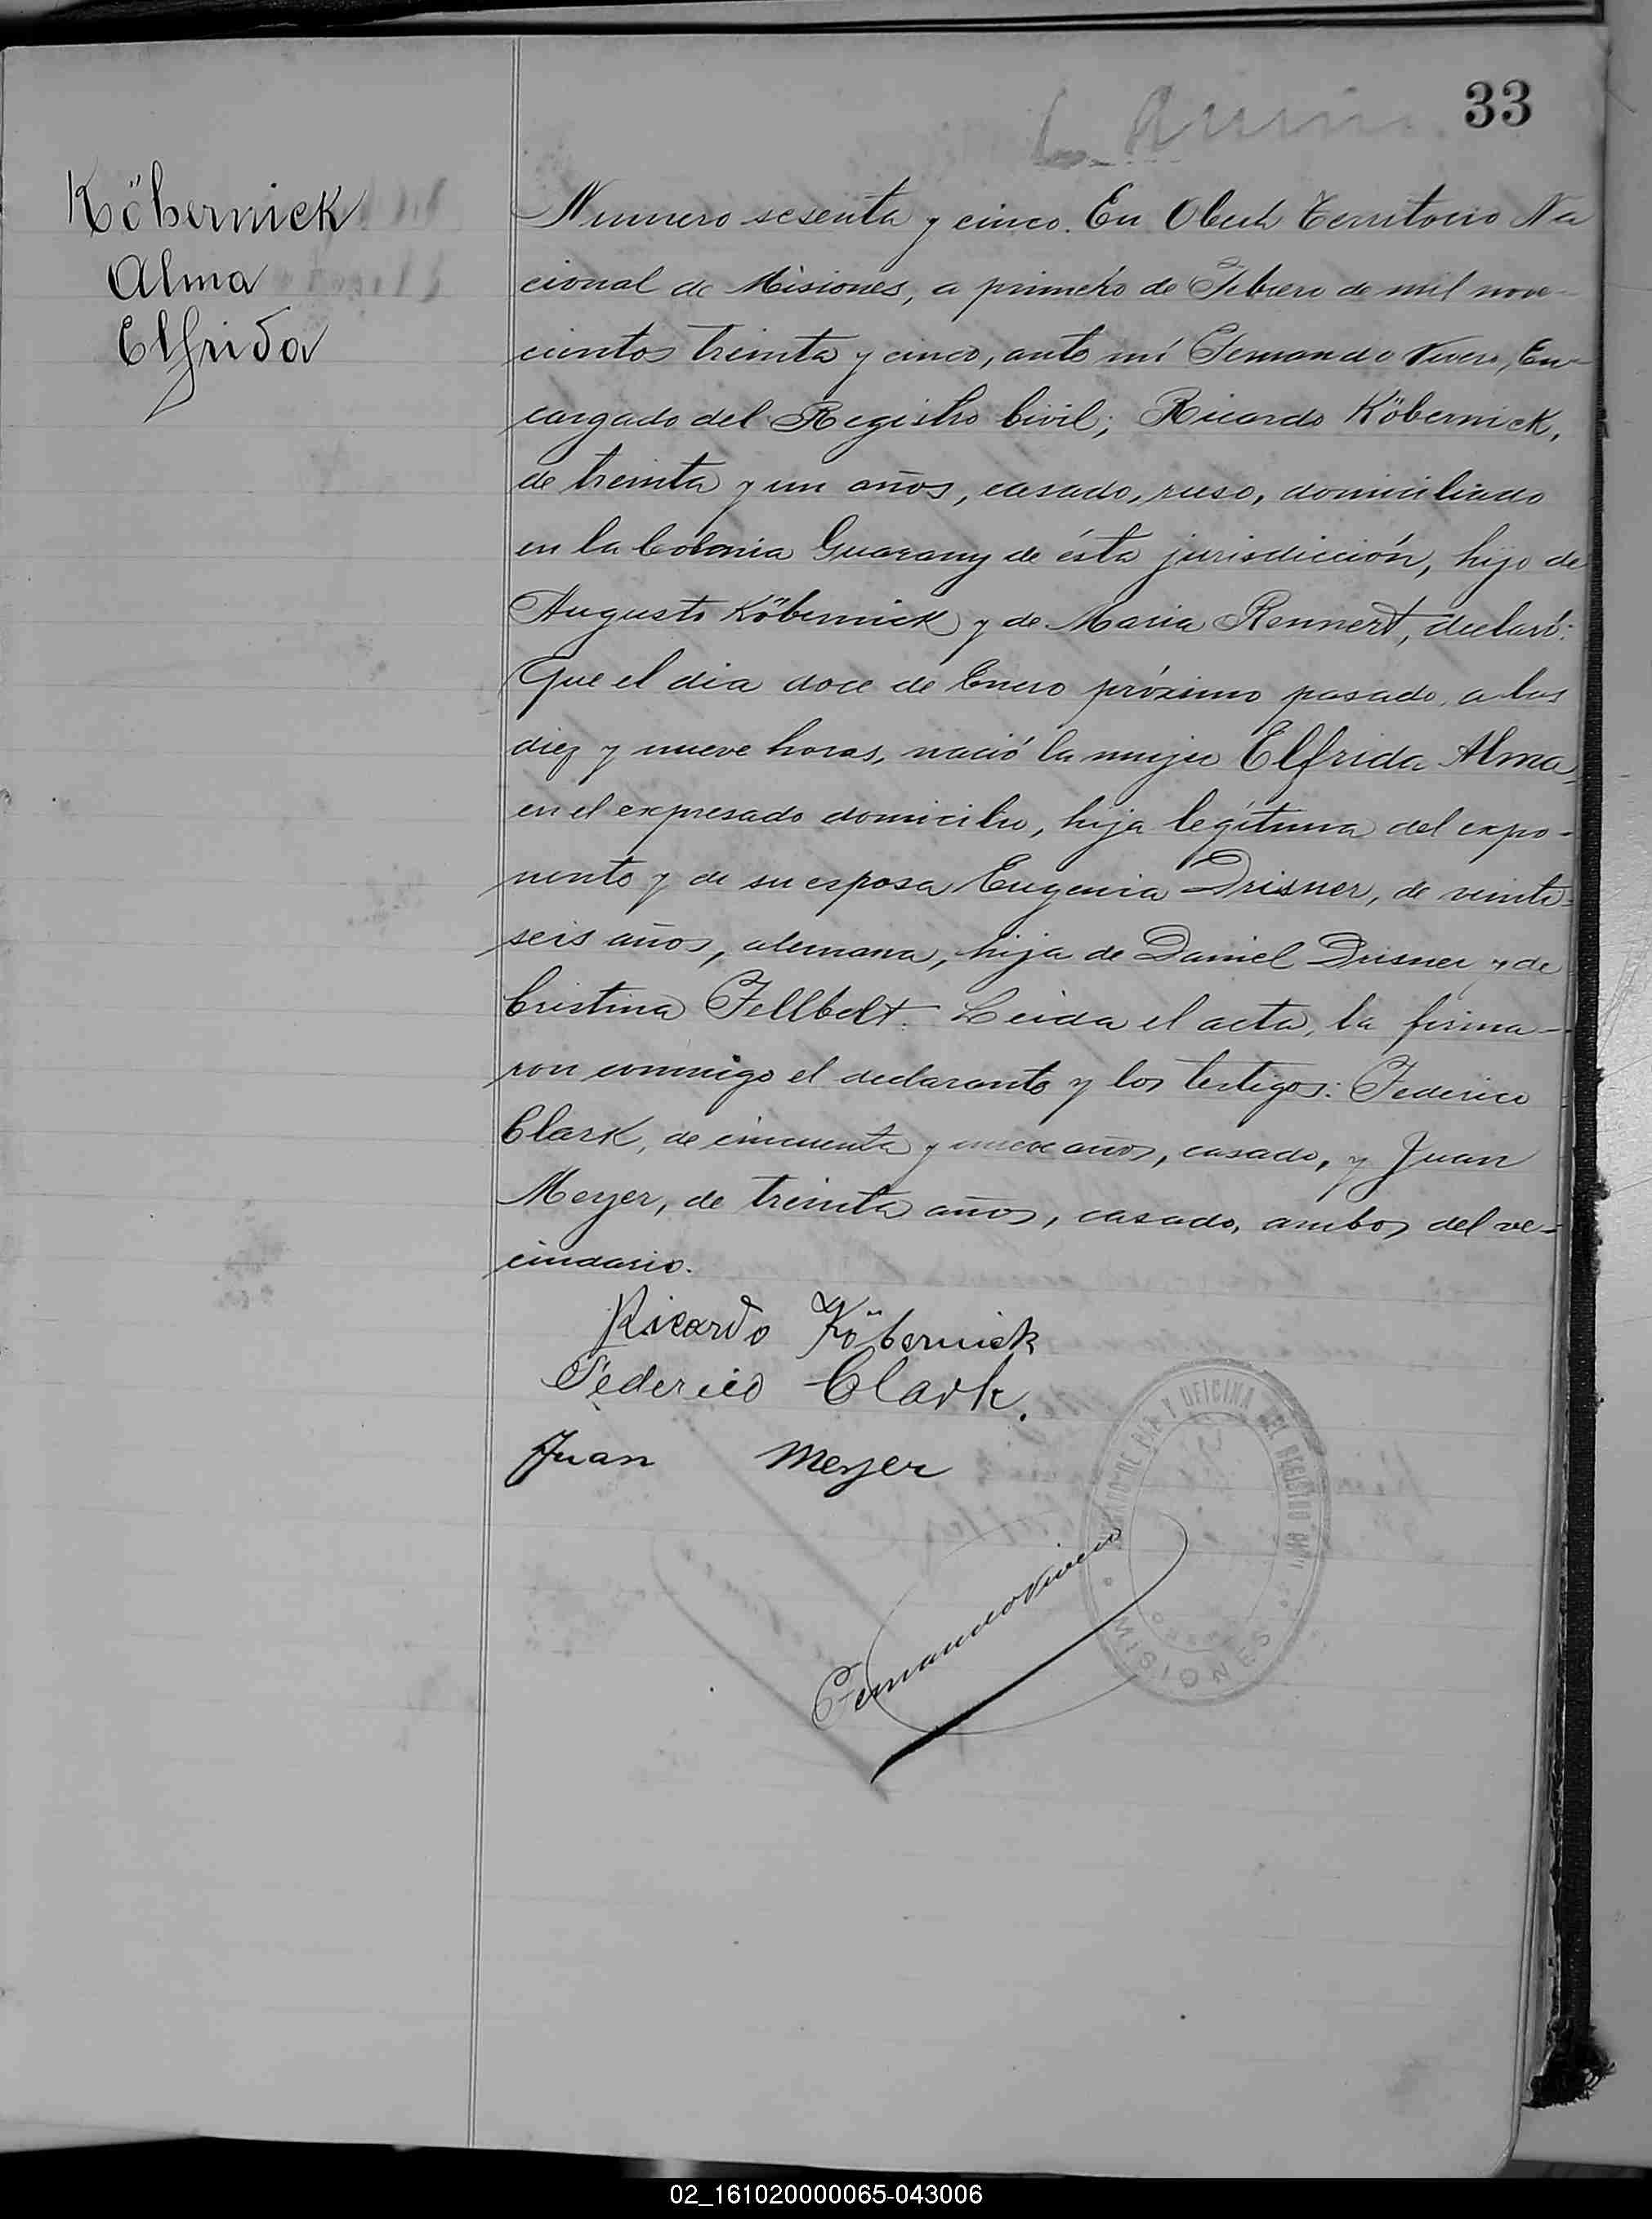 33
Köbernick
Alma
Elfrida
Numero sesenta y cinco. En Oberá Territorio Na
cional de Misiones, a primero de Febrero de mil nove-
cientos treinta y cinco, ante mí Fernando Vivero, En-
cargado del Registro Civil; Ricardo Köbernick,
de treinta y un años, casado, ruso, domiciliado
en la Colonia Guarany de ésta jurisdicción, hijo de
Augusto Köbernick y de Maria Rennert, declaró:
Que el dia doce de Enero próximo pasado, a las
diez y nueve horas, nació la mujer Elfrida Alma,
en el expresado domicilio, hija legítima del expo-
nente y de su esposa Eugenia Drisner, de veinti-
seis años, alemana, hija de Daniel Drisner y de
Cristina Fellbelt. Leida el acta, la firma-
ron conmigo el declarante y los testigos: Federico
Clark, de cincuenta y nueve años, casado, y Juan
Meyer, de treinta años, casado, ambos del ve-
cindario.
Ricardo Köbernick
Federico Clark.
Juan Meyer
Fernando Vivero
Y OFICINA DEL REGISTRO CIVIL
MISIONES
02_161020000065-043006